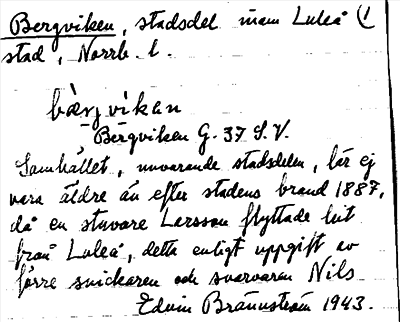 Bergviken, stadsdel inom Luleå (1
stad, Norrb. l.
bærjvikan
Bergviken G. 37 S.V.
Samhället, nuvarande stadsdelen, lär ej
vara äldre än efter stadens brand 1887,
då en stuvare Larsson flyttade hit
från Luleå, detta enligt uppgift av
förre snickaren och svarvaren Nils
Edvin Brännström 1943.